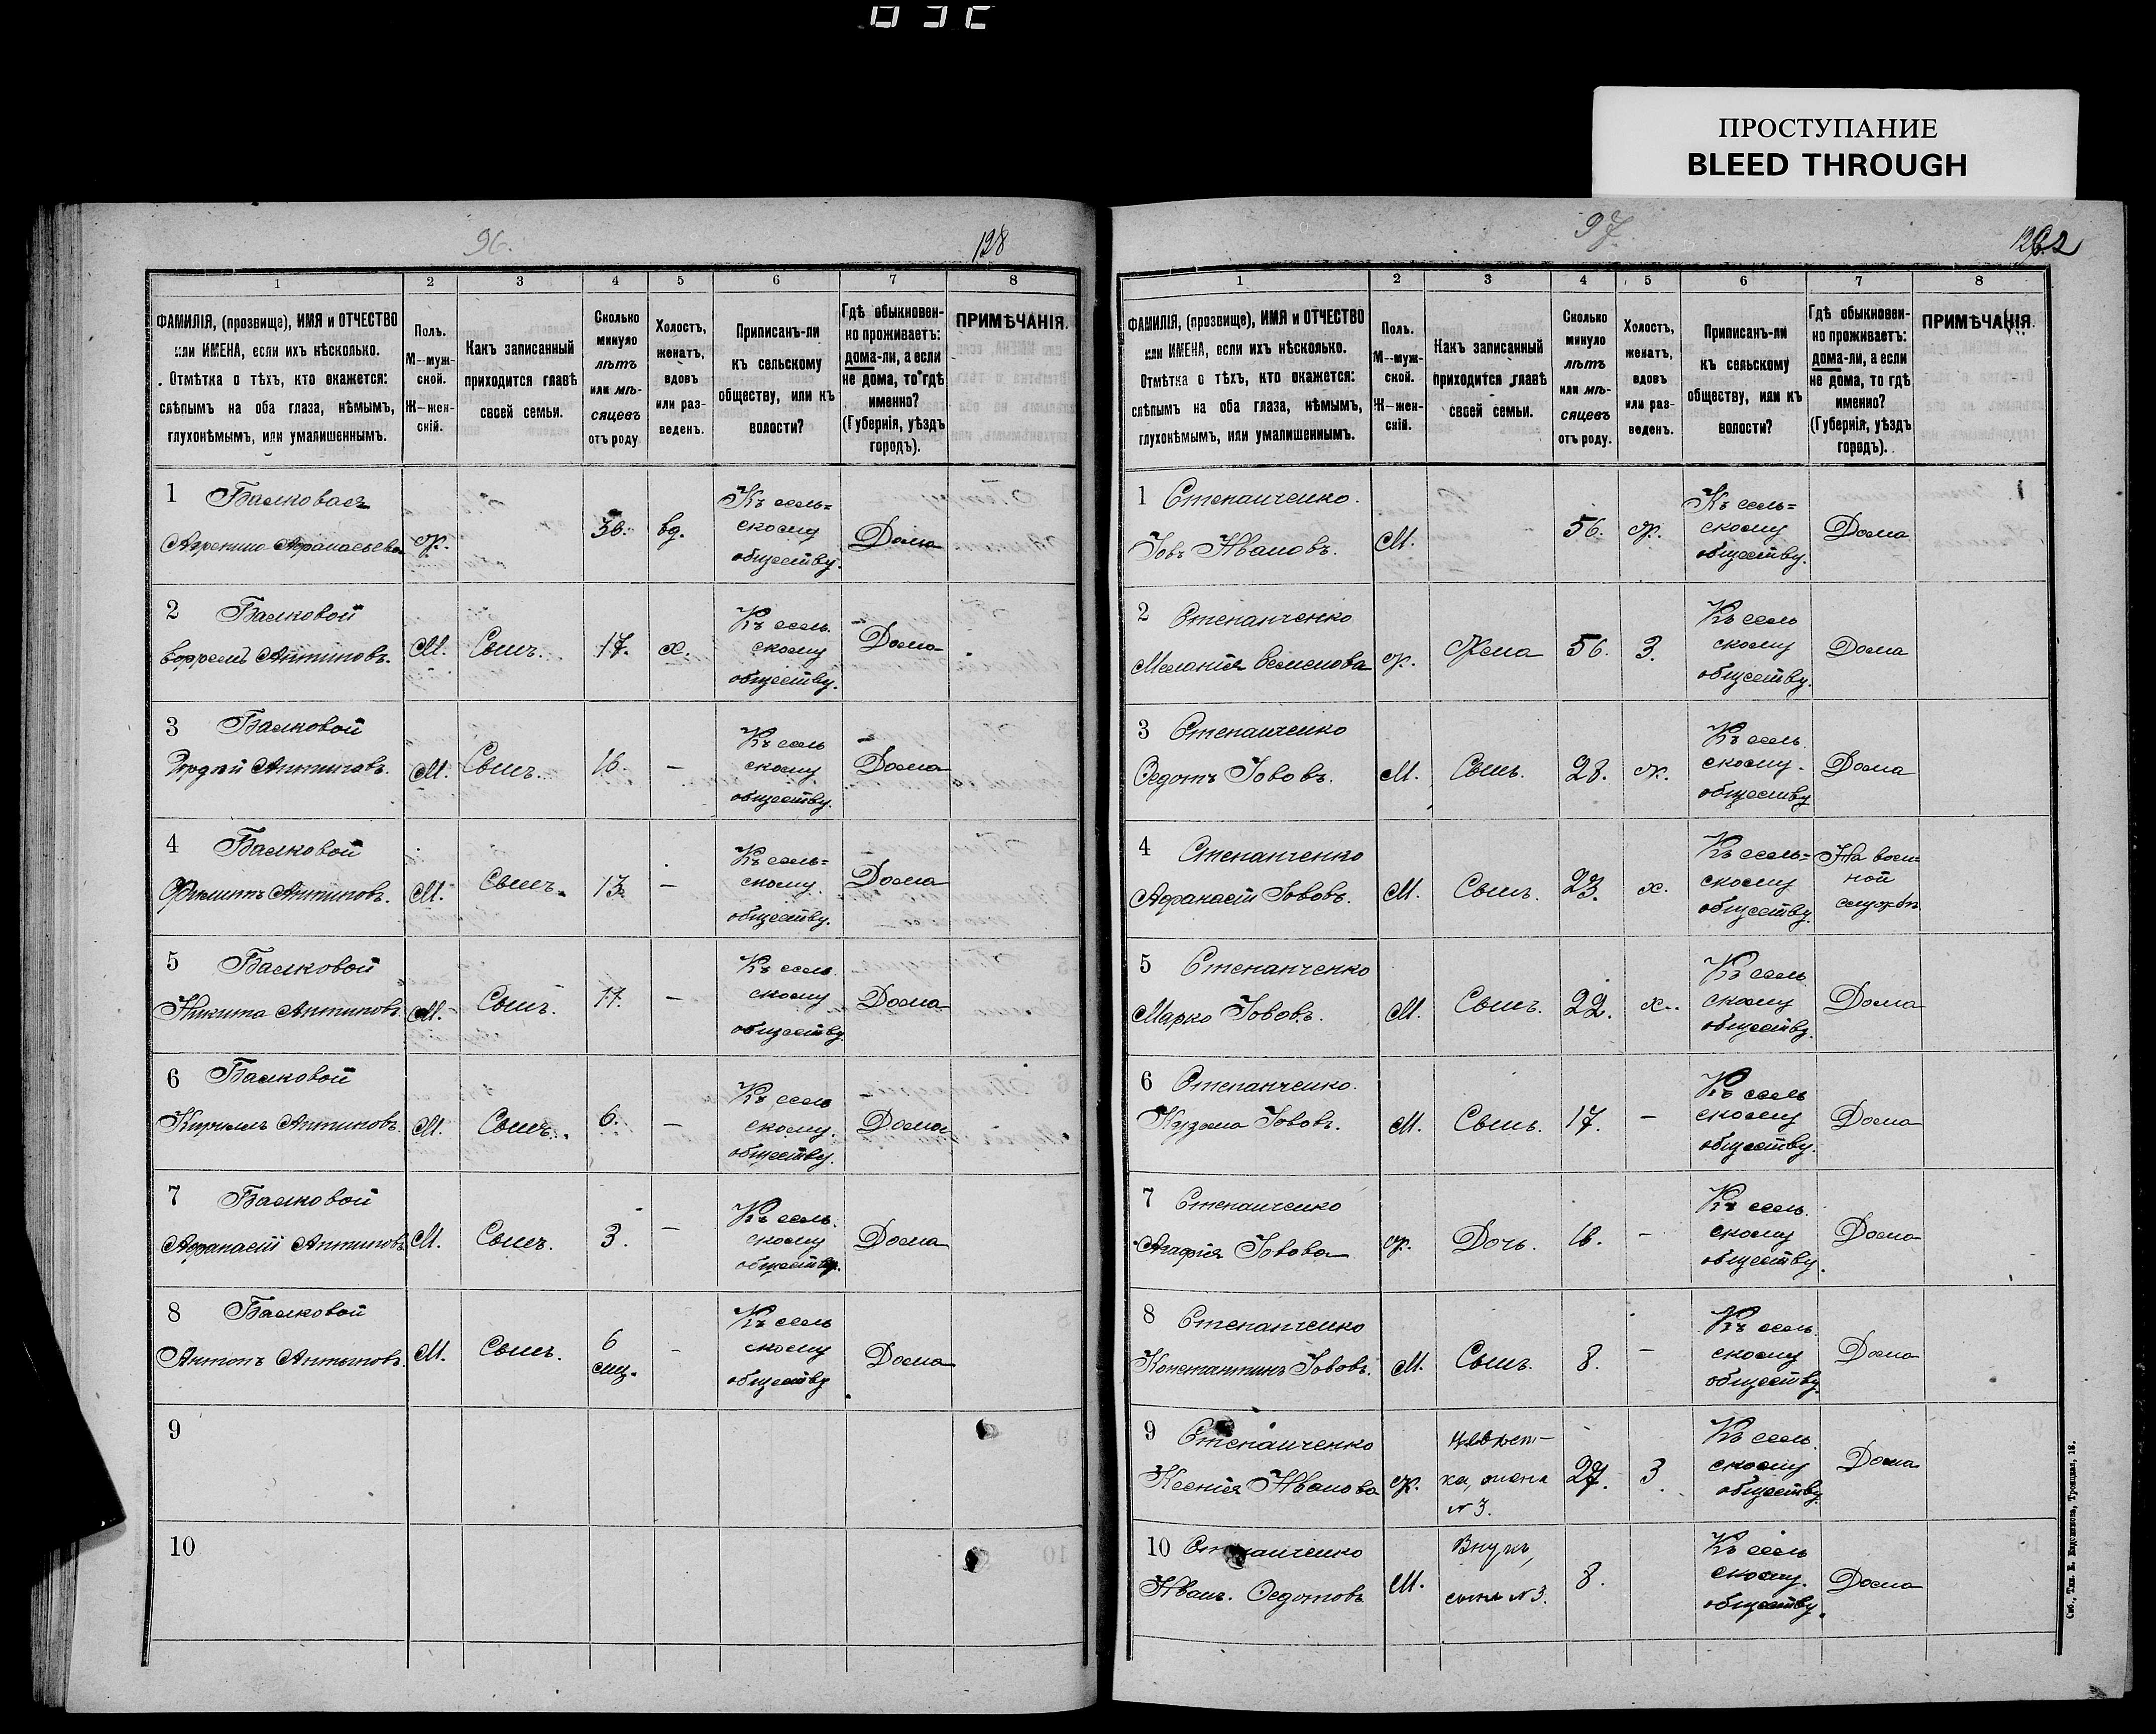 032
ПРОСТУПАНИЕ
BLEED THROUGH
96.
128
1 2 3 4 5 6 7 8
ФАМИЛІЯ, (прозвище), ИМЯ и ОТЧЕСТВО
или ИМЕНА, если ихъ нѣсколько.
Отмѣтка о тѣхъ, кто окажется:
слѣпымъ на оба глаза, нѣмымъ,
глухонѣмымъ, или умалишеннымъ.
Полъ.
М—муж-
ской.
Ж—жен-
скій.
Какъ записанный
приходится главѣ
своей семьи.
Сколько
минуло
лѣтъ
или мѣ-
сяцевъ
отъ роду
Холостъ,
женатъ,
вдовъ
или раз-
веденъ.
Приписанъ-ли
къ сельскому
обществу, или къ
волости?
Гдѣ обыкновен-
но проживаетъ:
дома-ли, а если
не дома, то гдѣ
именно?
(Губернія, уѣздъ
городъ).
ПРИМѢЧАНІЯ.
1 Балковая
Афанасьева ж. вд. Къ сель=
скому
обществу. Дома
2 Балковой
Антиповъ. М. Сынъ. 17. х. Къ сель
скому
обществу. Дома
3 Балковой
Антиповъ. М. Сынъ. 16. — Къ сель
скому
обществу. Дома
4 Балковой
Филиппъ Антиповъ. М. Сынъ. 13. — Къ сель=
скому
обществу. Дома
5 Балковой
Никита Антиповъ. М. Сынъ. 11. — Къ сель
скому
обществу Дома
6 Балковой
Кириллъ Антиповъ. М. Сынъ. 6. — Къ сель
скому
обществу. Дома
7 Балковой
Афанасій Антиповъ М. Сынъ. 3. — Къ сель.
скому
обществу. Дома
8 Балковой
Антонъ Антиповъ. М. Сынъ. 6
мц. - Къ сель
скому
обществу Дома
9
10
97.
1 2 3 4 5 6 7 8
ФАМИЛІЯ, (прозвище), ИМЯ и ОТЧЕСТВО
или ИМЕНА, если ихъ нѣсколько.
Отмѣтка о тѣхъ, кто окажется:
слѣпымъ на оба глаза, нѣмымъ,
глухонѣмымъ, или умалишеннымъ.
Полъ.
М—муж-
ской.
Ж—жен-
скій.
Какъ записанный
приходится главѣ
своей семьи.
Сколько
минуло
лѣтъ
или мѣ-
сяцевъ
отъ роду.
Холостъ,
женатъ,
вдовъ
или раз-
веденъ.
Приписанъ-ли
къ сельскому
обществу, или къ
волости?
Гдѣ обыкновен-
но проживаетъ:
дома-ли, а если
не дома, то гдѣ
именно?
(Губернія, уѣздъ
городъ).
ПРИМѢЧАНІЯ.
1 Степанченко.
Іовъ Ивановъ. М. 56. ж. Къ сель=
скому
обществу. Дома
2 Степанченко
Меланія Семенова ж. Жена 56. З. Къ сель
скому
обществу. Дома
3 Степанченко
Ѳедотъ Іововъ. М. Сынъ. 28. ж. Къ сель
скому.
обществу Дома
4 Степанченко
Афанасій Іововъ. М. Сынъ. 23. х. Къ сель=
скому
обществу. На воен-
ной
службѣ
5 Степанченко
Марко Іововъ. М. Сынъ. 22. х. Къ сель
скому
обществу. Дома
6 Степанченко.
Кузьма Іововъ. М. Сынъ. 17. — Къ сель
скому
обществу. Дома
7 Степанченко
Агафія Іовова ж. Дочь. 16. - Къ сель.
скому
обществу. Дома
8 Степанченко
Константинъ Іововъ. М. Сынъ. 8. — Къ сель.
скому
обществу. Дома
9 Степанченко
Ксенія Иванова ж. Невѣст-
ка, жена
№ 3. 27. З. Къ сель.
скому
обществу. Дома
10 Степанченко
Иванъ. Ѳедотовъ М. Внукъ,
сынъ № 3. 8. Къ сель
скому.
обществу. Дома